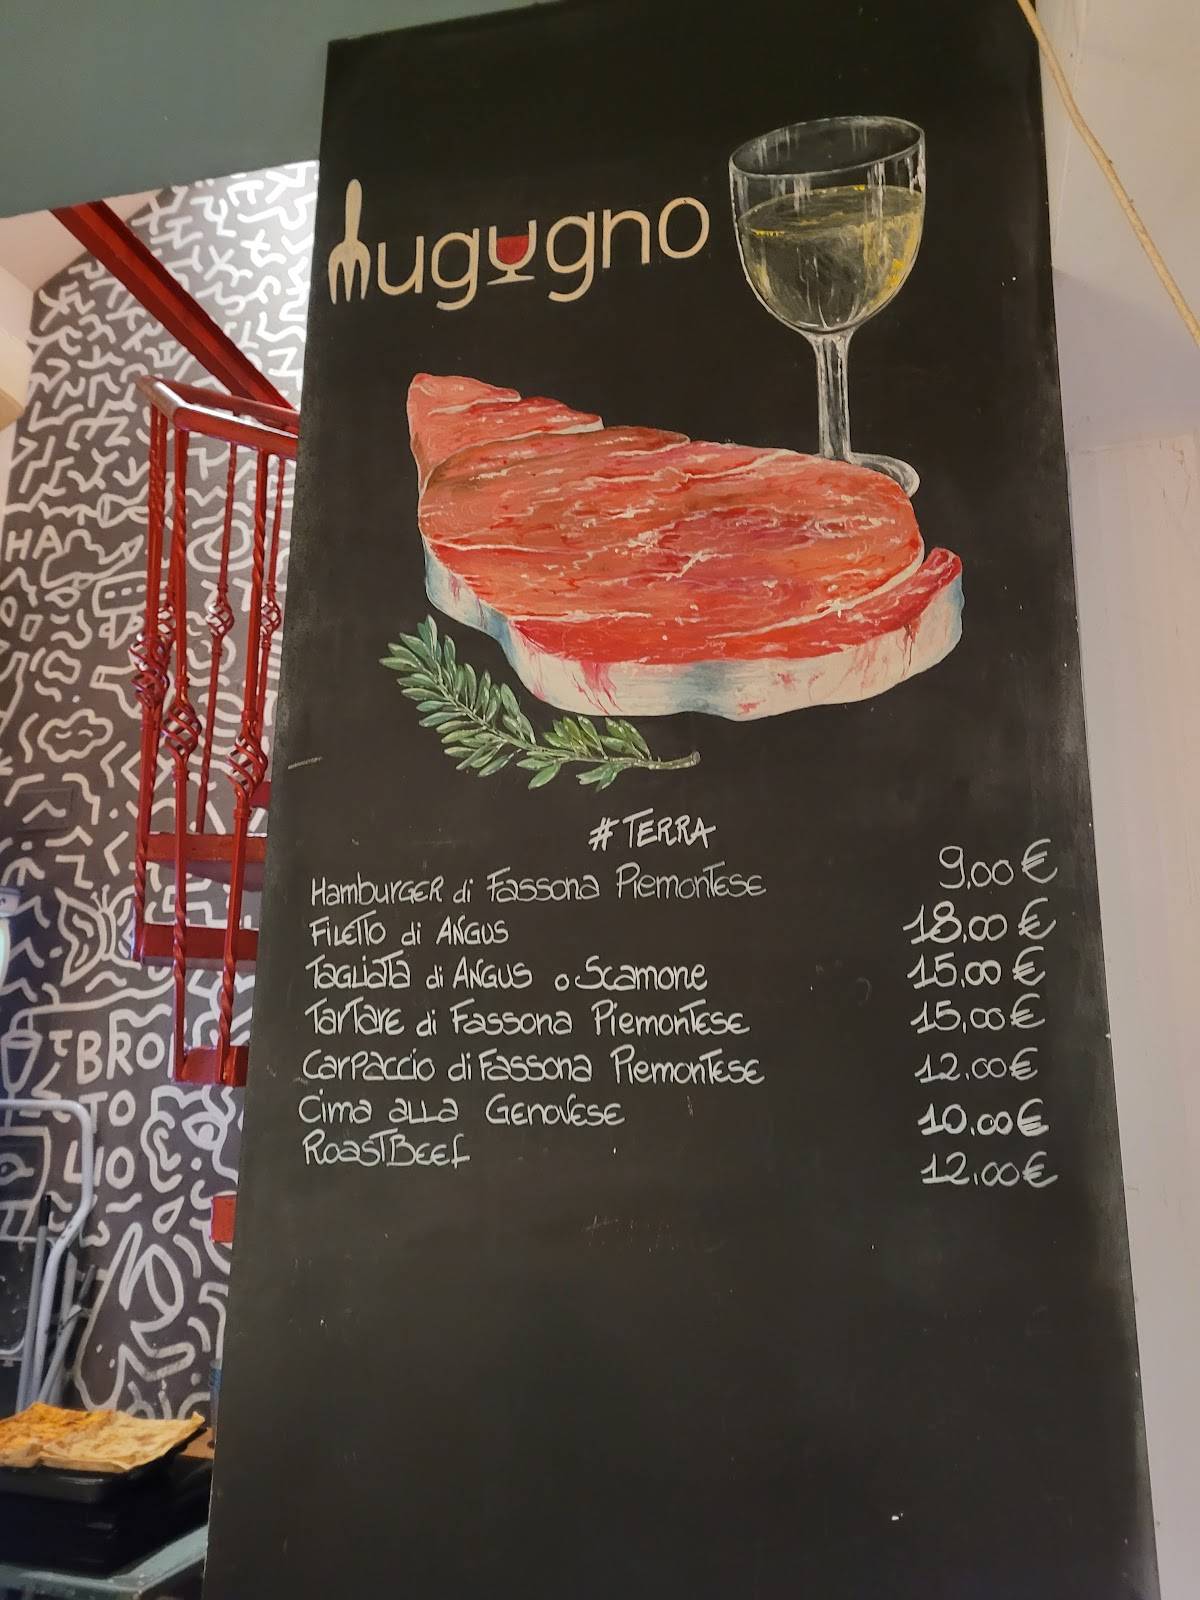 mugugno
# TERRA
Hamburger di Fassona Piemontese 9,00 €
Filetto di Angus 18,00 €
Tagliata di Angus o Scamone 15,00 €
Tartare di Fassona Piemontese 15,00 €
Carpaccio di Fassona Piemontese 12,00 €
Cima alla Genovese 10,00 €
RoastBeef 12,00 €
HA
BRO
TO